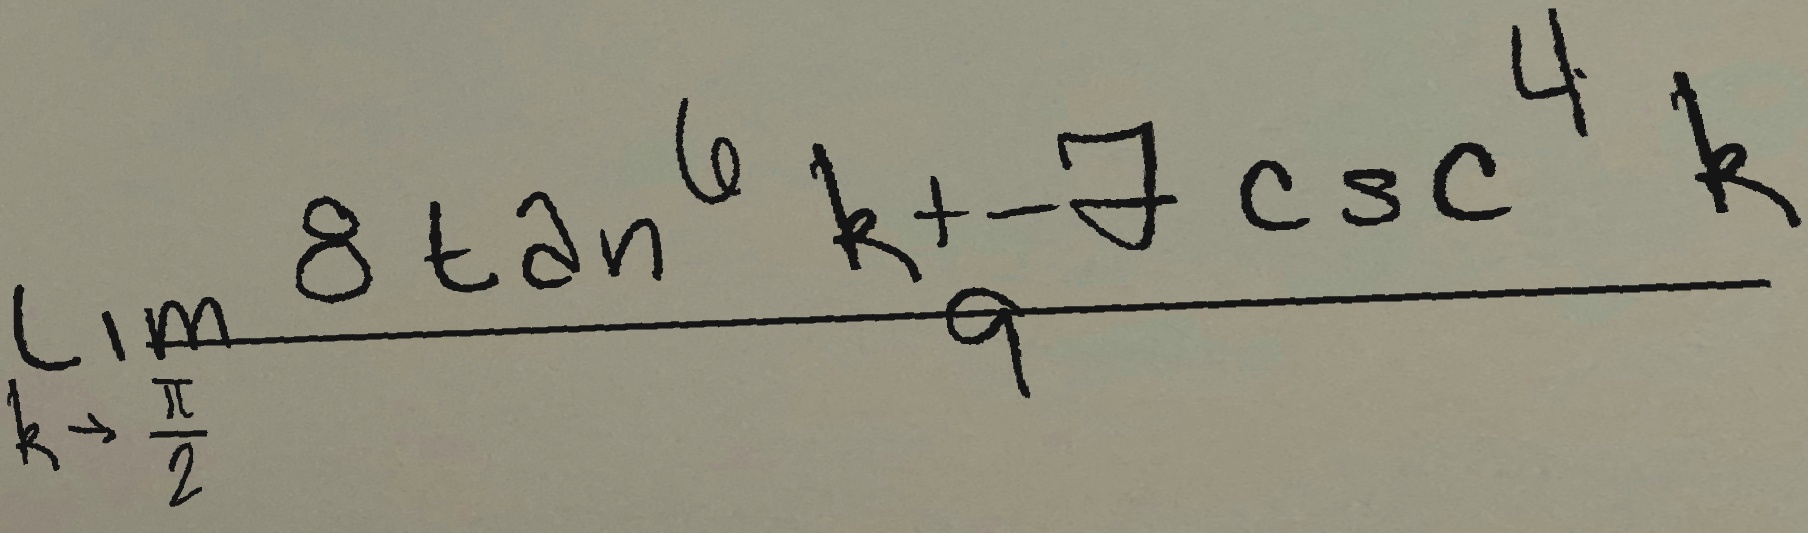 \lim_{k \to \frac{\pi}{2}} \frac{8 \tan^6 k + -7 \csc^4 k}{9}